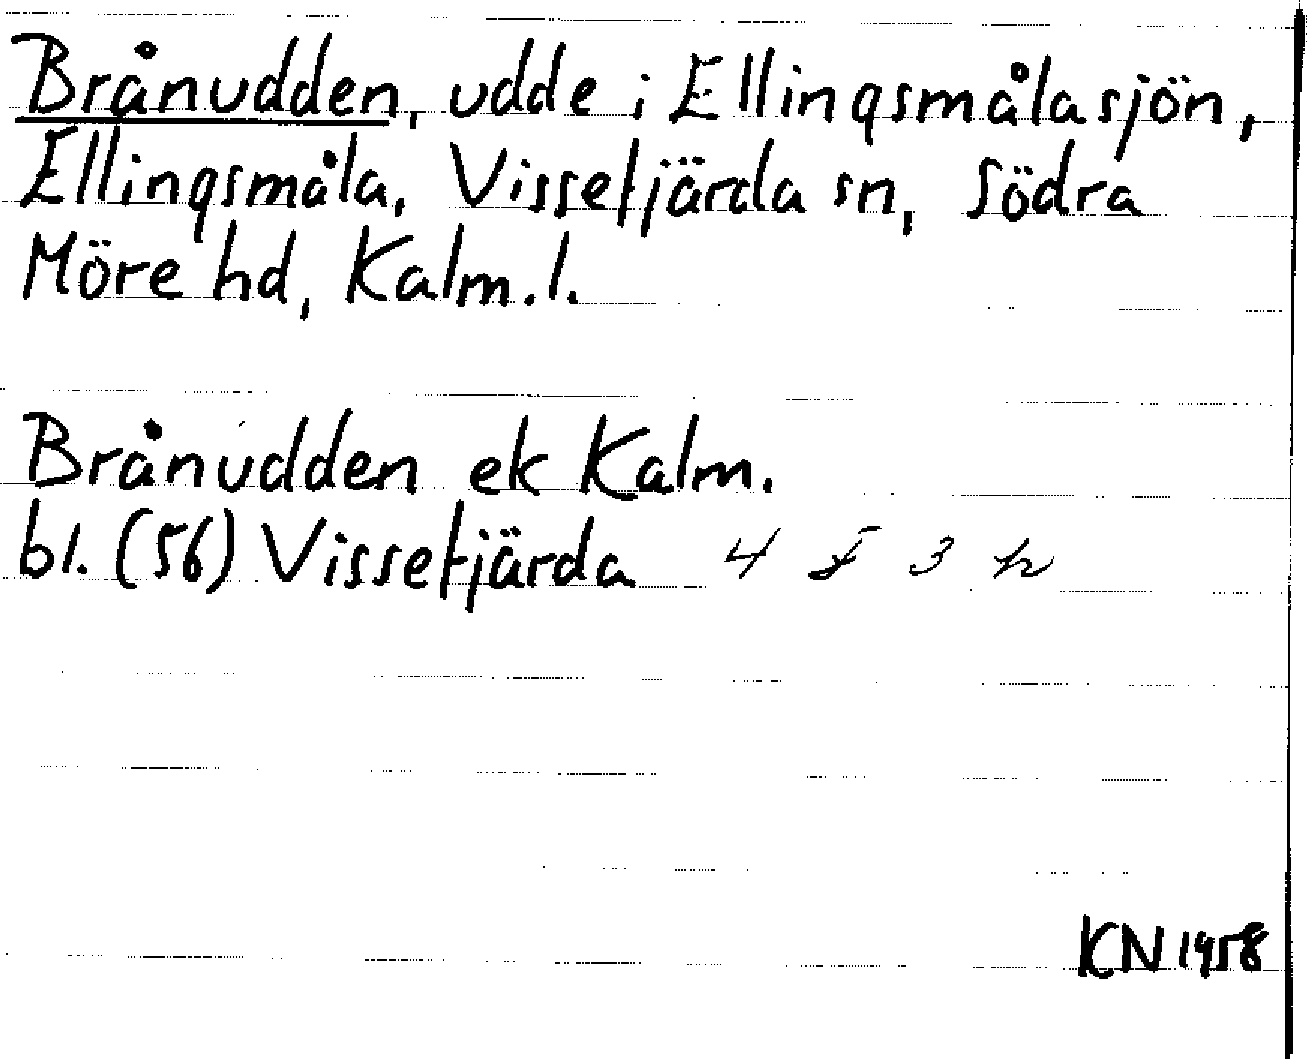 Brånudden, udde i Ellingsmålasjön,
Ellingsmåla, Vissefjärda sn, Södra
Möre hd, Kalm. l.
Brånudden ek Kalm.
bl. (56) Vissefjärda 4 F 3 h
KN 1958